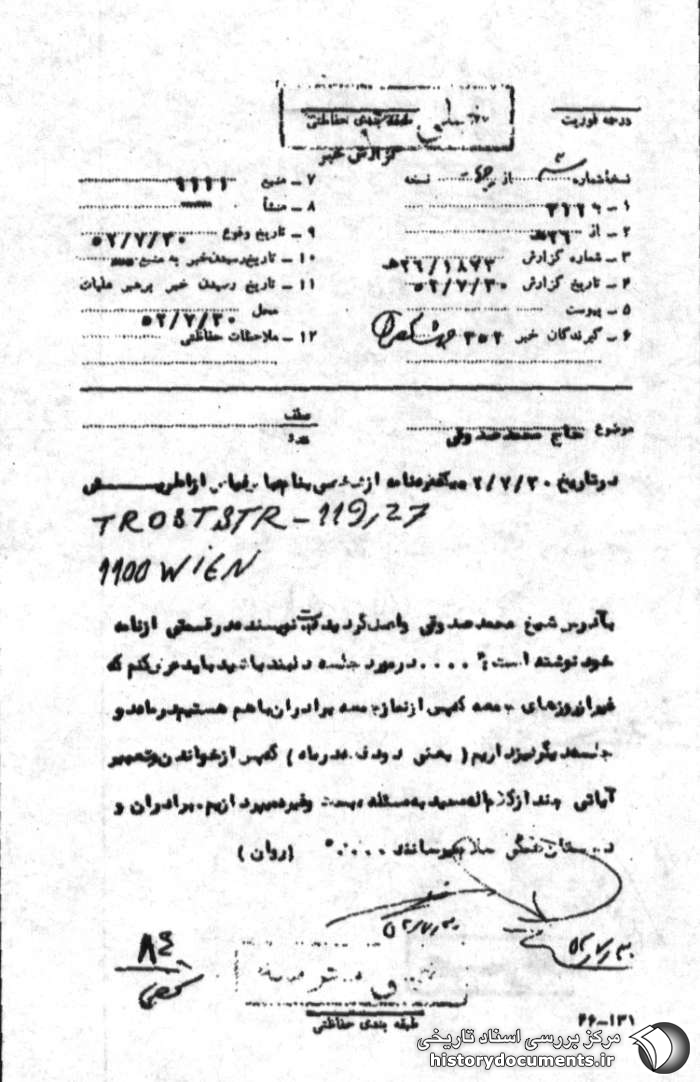 درجه فوریت
طبقه بندی حفاظتی
گزارش خبر
نسخه شماره ۳ از نسخه
۱ - ۳۱۲۶
۲ - از ۲۶ه‍
۳ - شماره گزارش ۲۶/۱۸۷۲ه‍
۴ - تاریخ گزارش ۵۲/۷/۳۰
۵ - پیوست
۶ - گیرندگان خبر ۳۵۲
۷ - منبع ۹۹۹۹
۸ - منشأ
۹ - تاریخ وقوع ۵۲/۷/۳۰
۱۰ - تاریخ رسیدن خبر به منبع
۱۱ - تاریخ رسیدن خبر برهبر عملیات
محل ۵۲/۷/۳۰
۱۲ - ملاحظات حفاظتی
موضوع حاج محمد صدوقی
عطف
در تاریخ ۲/۷/۳۰ یکفقره نامه از شخصی بنام عباس از اطریش
TROSTSTR - 119,27
1100 WIEN
بآدرس شیخ محمد صدوقی واصل گردیده است نویسنده در قسمتی از نامه
خود نوشته است: " .... در مورد جلسه خواسته باشید باید عرض کنم که
غیر از روزهای جمعه که پس از نماز جمعه برادران با هم هستیم در ماه دو
جلسه دیگر نیز داریم ( یعنی دو دفعه در ماه ) که پس از خواندن و تفسیر
آیاتی چند از کلام الله مجید به مسئله و بحث وغیره میپردازیم. برادران و
دوستان همگی سلام میرسانند .... " (روان)
۵۲/۷/۳۰
۵۲/۷/۳۰
۸۴
طبقه بندی حفاظتی
۲۶-۱۳۱
مرکز بررسی اسناد تاریخی
historydocuments.ir